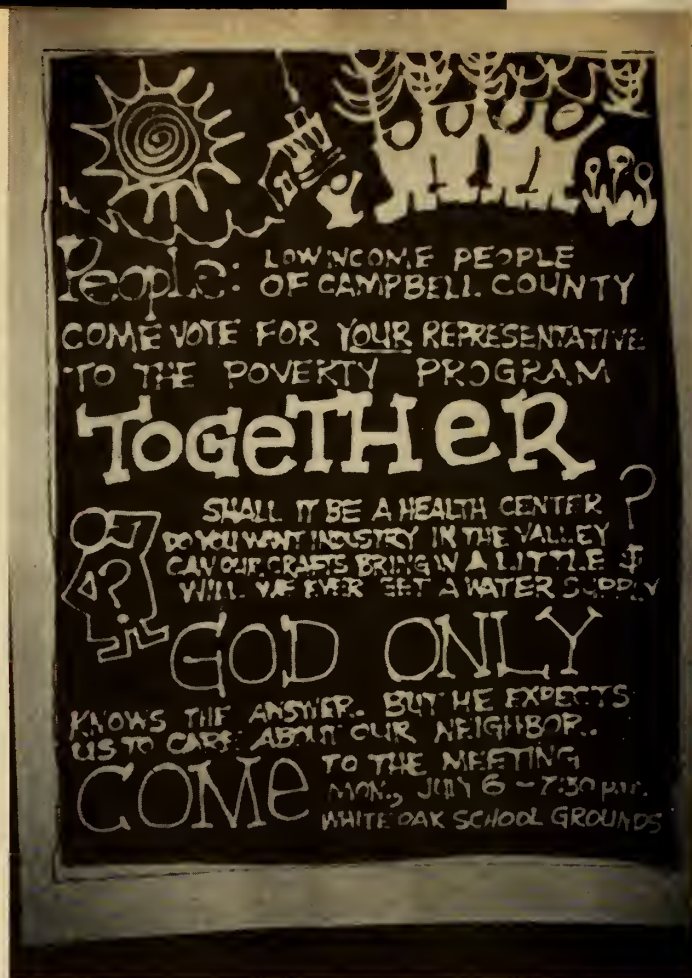 People: LOW INCOME PEOPLE
OF CAMPBELL COUNTY
COME VOTE FOR YOUR REPRESENTATIVE
TO THE POVERTY PROGRAM
TOGETHER
SHALL IT BE A HEALTH CENTER ?
DO YOU WANT INDUSTRY IN THE VALLEY
CAN OUR CRAFTS BRING IN A LITTLE $
WILL WE EVER GET A WATER SUPPLY
?
GOD ONLY
KNOWS THE ANSWER. BUT HE EXPECTS
US TO CARE ABOUT OUR NEIGHBOR..
COME TO THE MEETING
MON., JULY 6 - 7:30 p.m.
WHITE OAK SCHOOL GROUNDS